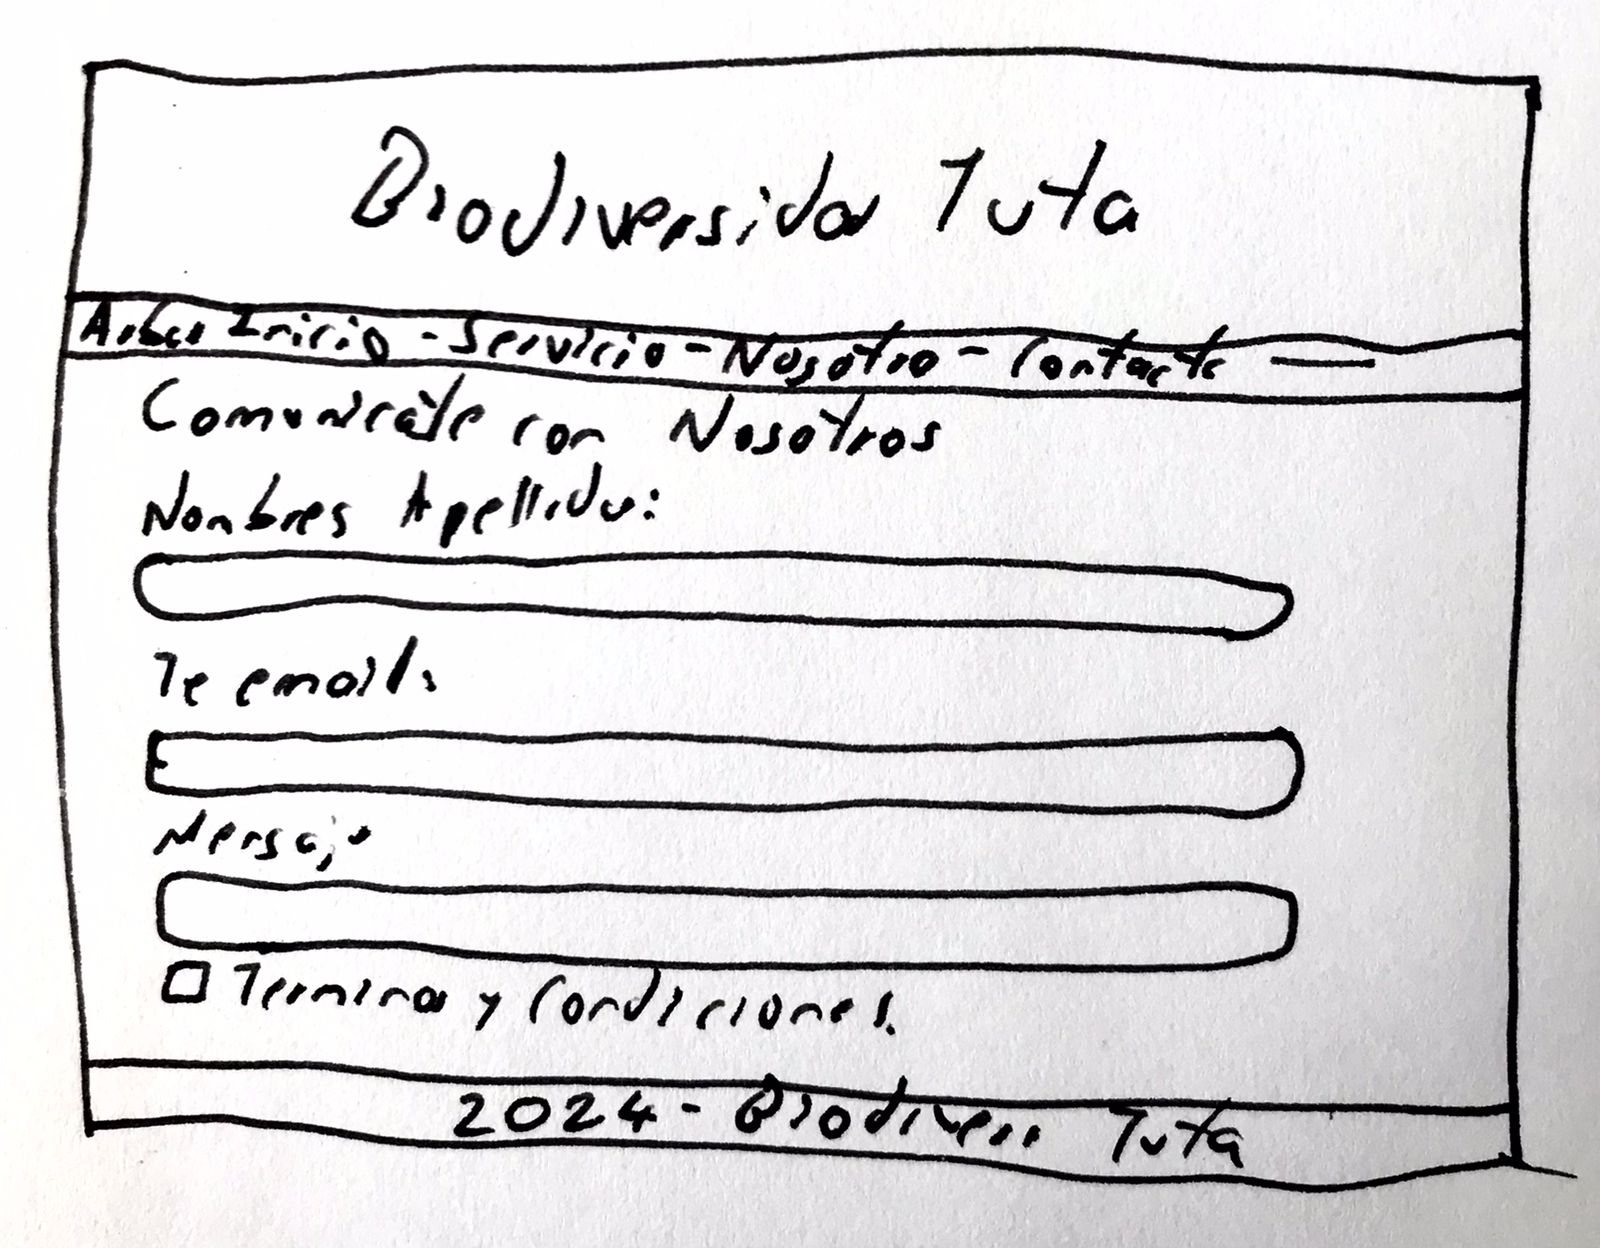 Biodiversidad Tuta
Inicio - Servicio - Nosotro - Contacto
Comunicate con Nosotros
Nombres Apellidos:
Te email:
Mensaje
Terminos y Condiciones.
2024 - Biodivers Tuta